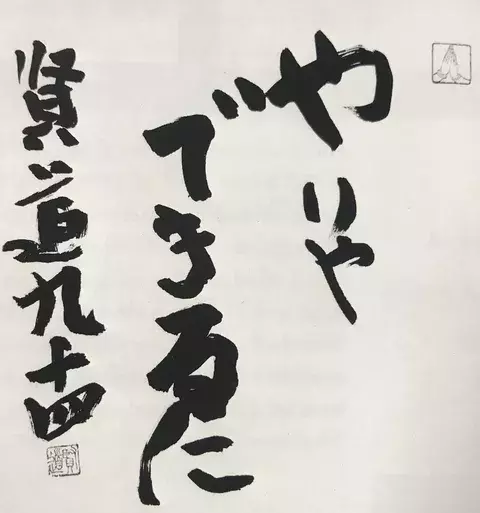 やりや
できるに
賢道九十四